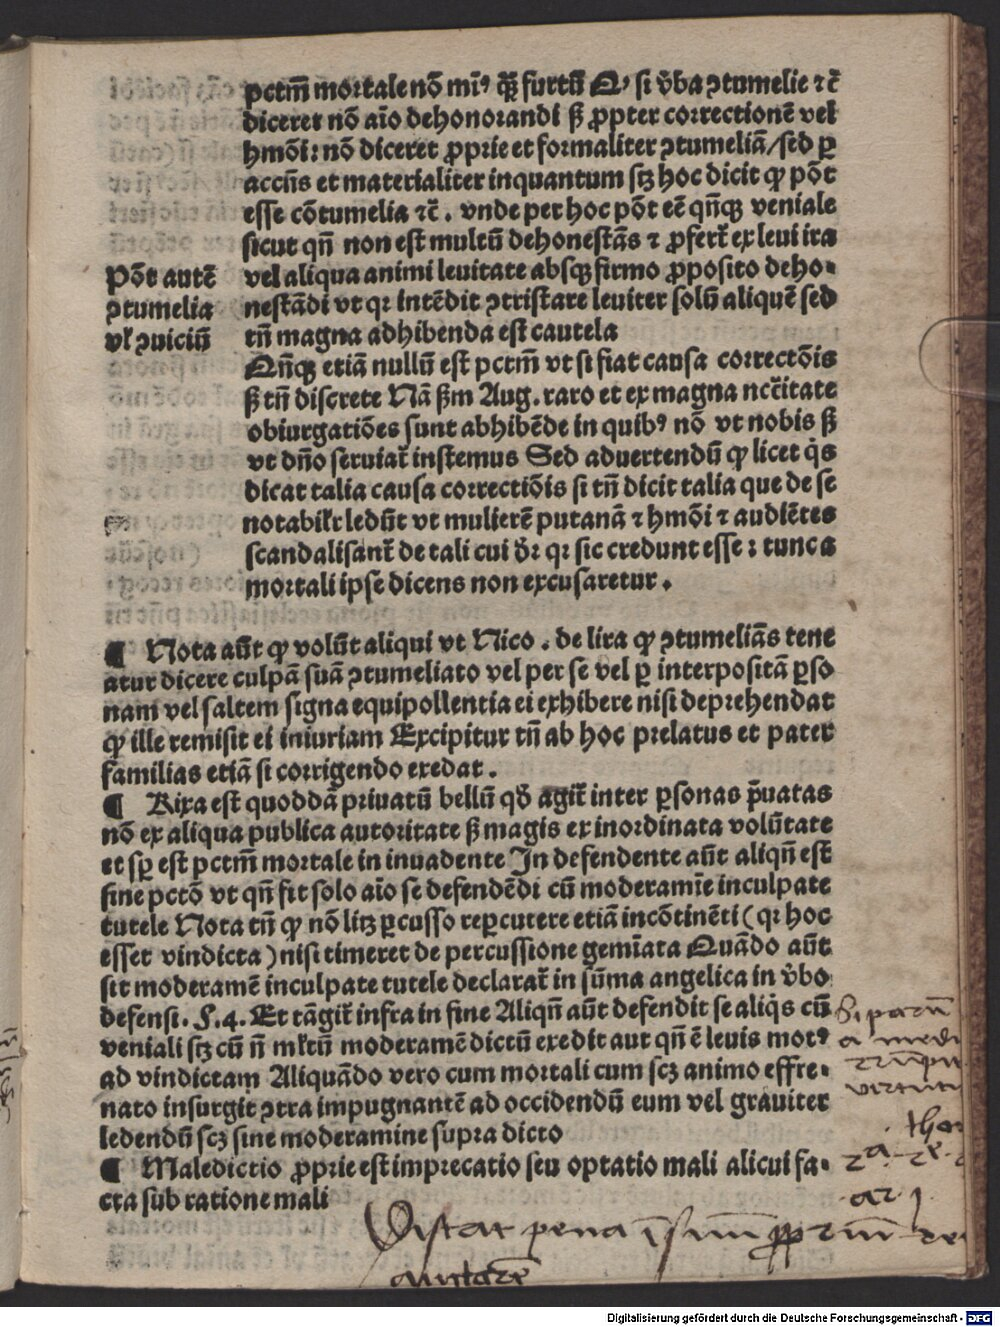 pctm̄ mortale nō mī⁹ q̄ꝫ furtū Q⁹ si v̄ba ꝯtumelie ⁊c̄
diceret nō aīo dehonorandi ß ꝓpter correctionē vel
hmōi: nō diceret ꝓprie et formaliter ꝯtumeliā/sed ꝑ
accn̄s et materialiter inquantum scꝫ hoc dicit ꝙ pōt
esse cōtumelia ⁊c̄. vnde per hoc pōt eē qn̄qꝫ veniale
sicut qn̄ non est multū dehonestās ⁊ ꝓfert̄ ex leui ira
vel aliqua animi leuitate absqꝫ firmo ꝓposito deho-
nestādi vt qꝛ intēdit ꝯtristare leuiter solū aliquē sed
tn̄ magna adhibenda est cautela
Pōt autē
ꝯtumelia
vl̓ ꝯuiciū
Qn̄qꝫ etiā nullū est pctm̄ vt si fiat causa correctōis
ß tn̄ discrete Nā ßm Aug. raro et ex magna ncc̄itate
obiurgatiōes sunt abhibēde in quib⁹ nō vt nobis ß
vt dn̄o seruiat̄ instemus Sed aduertendū ꝙ licet q̇s
dicat talia causa correctiōis si tn̄ dicit talia que de se
notabilr̄ ledūt vt mulierē putanā ⁊ hmōi ⁊ audiētes
scandalisant̄ de tali cui dr̄: qꝛ sic credunt esse: tunc a
mortali ipse dicens non excusaretur.
¶ Nota aūt ꝙ volūt aliqui vt Nico. de lira ꝙ ꝯtumeliās tene
atur dicere culpā suā ꝯtumeliato vel per se vel ꝑ interpositā ꝑso
nam vel saltem signa equipollentia ei exhibere nisi deprehendat
ꝙ ille remisit ei iniuriam Excipitur tn̄ ab hoc prelatus et pater
familias etiā si corrigendo exedat.
¶ Rixa est quoddā priuatū bellū qd̄ agit̄ inter ꝑsonas p̄uatas
nō ex aliqua publica autoritate ß magis ex inordinata volūtate
et sꝑ est pctm̄ mortale in inuadente In defendente aūt aliqn̄ est
sine pctō vt qn̄ fit solo aīo se defendēdi cū moderamīe inculpate
tutele Nota tn̄ ꝙ nō licꝫ ꝑcusso reꝑcutere etiā incōtinēti (qꝛ hoc
esset vindicta) nisi timeret de percussione gemīata Quādo aūt
sit moderamē inculpate tutele declarat̄ in sūma angelica in v̄bo
defensi. §.4. Et tāgit̄ infra in fine Aliqn̄ aūt defendit se aliq̇s cū
veniali scꝫ cū n̄ ml̓tū moderamē dictū exedit aut qn̄ ē leuis mot⁹
ad vindictam Aliquādo vero cum mortali cum scꝫ animo effre-
nato insurgit ꝯtra impugnantē ad occidendū eum vel grauiter
ledendū scꝫ sine moderamine supra dicto
¶ Maledictio ꝓprie est imprecatio seu optatio mali alicui fa-
cta sub ratione mali
Distat pena
Digitalisierung gefördert durch die Deutsche Forschungsgemeinschaft - DFG